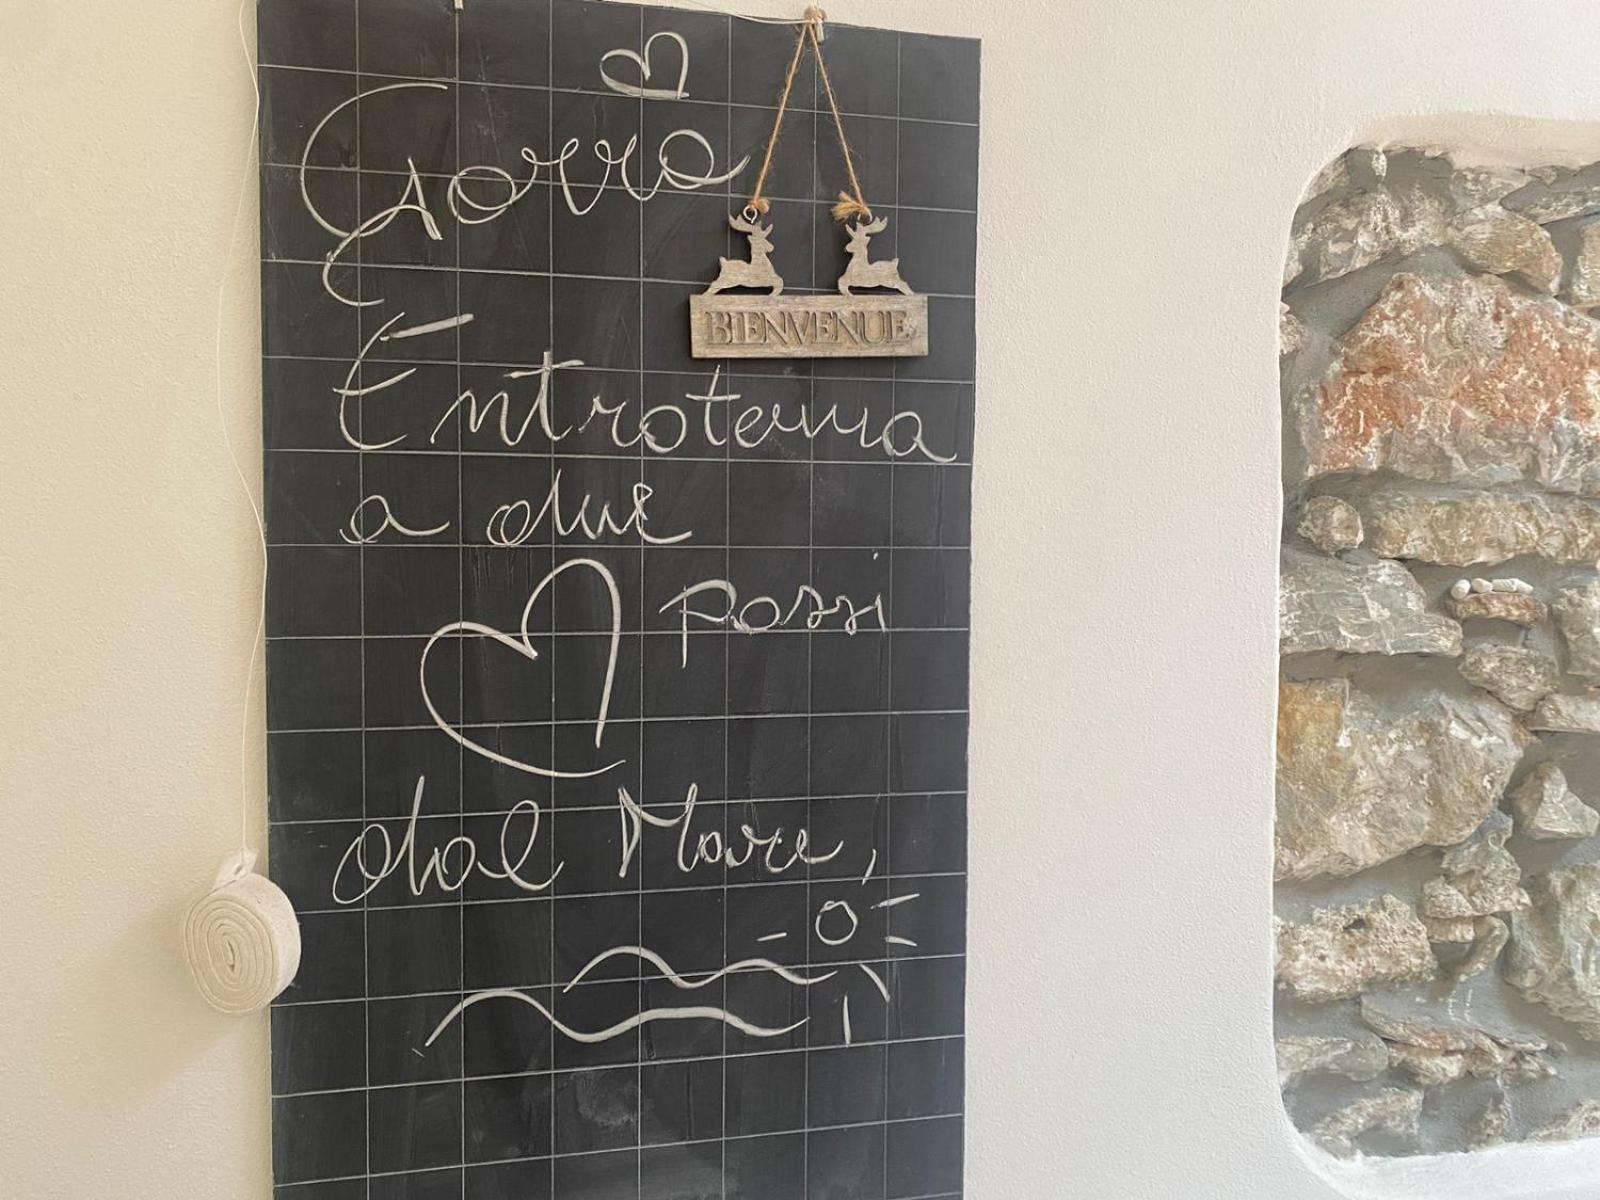 Gorra
BIENVENUE
Entroterra
a due
passi
dal Mare